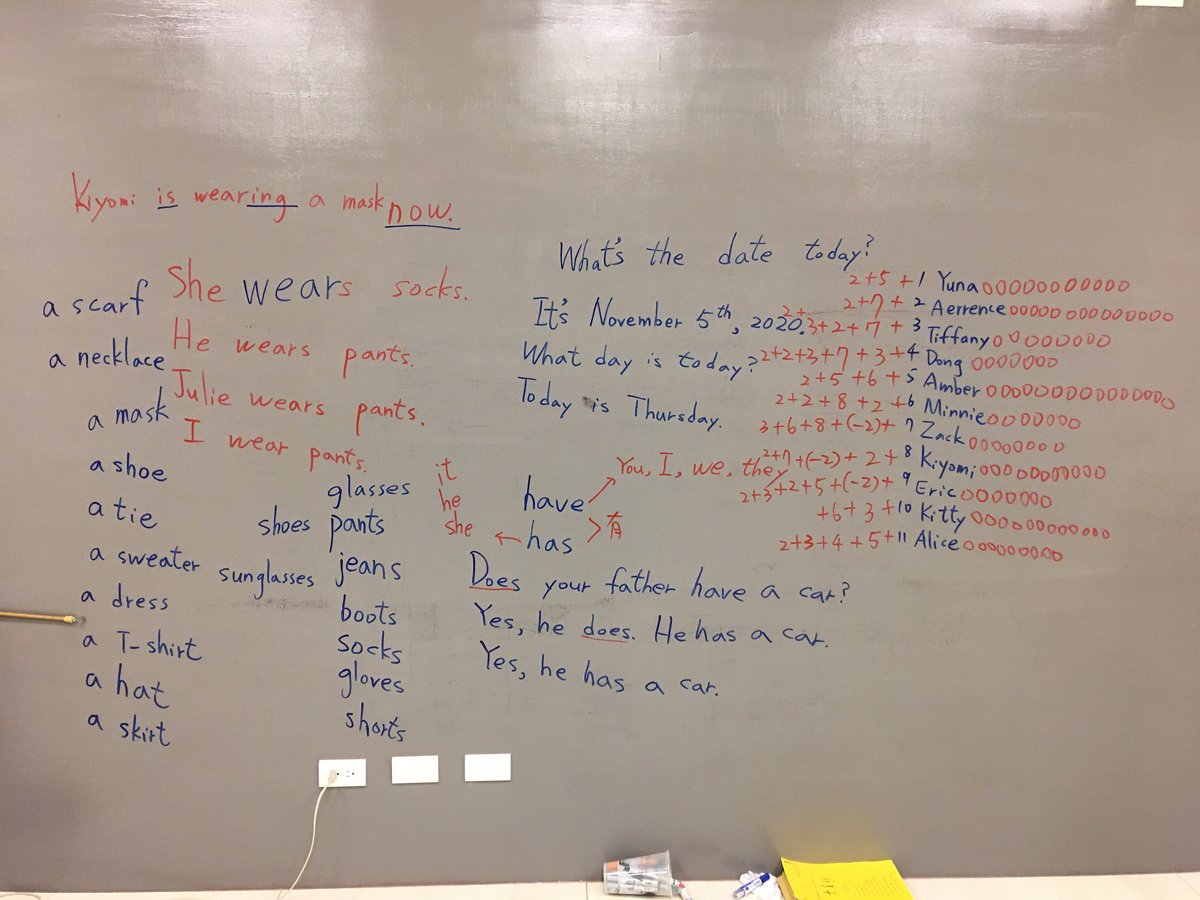 Kiyomi is wearing a mask now.
She wears socks.
He wears pants.
Julie wears pants.
I wear pants.
a scarf
a necklace
a mask
a shoe
a tie
a sweater
a dress
a T-shirt
a hat
a skirt
glasses
shoes pants
sunglasses jeans
boots
socks
gloves
shorts
What's the date today?
It's November 5th, 2020.
What day is today?
Today is Thursday.
it
he
she
have
has
You, I, we, they
有
Does your father have a car?
Yes, he does. He has a car.
Yes, he has a car.
2+5 +1 Yuna
2+7+ 2 Aerrence
2+3+2+7 + 3 Tiffany
2+2+3+7+3+4 Dong
2+5+6+5 Amber
2+2+8+2+6 Minnie
3+6+8+(-2)+ 7 Zack
2+7+(-2)+2+8 Kiyomi
2+3+2+5+(-2)+ 9 Eric
+6+3+10 Kitty
2+3+4+5+11 Alice